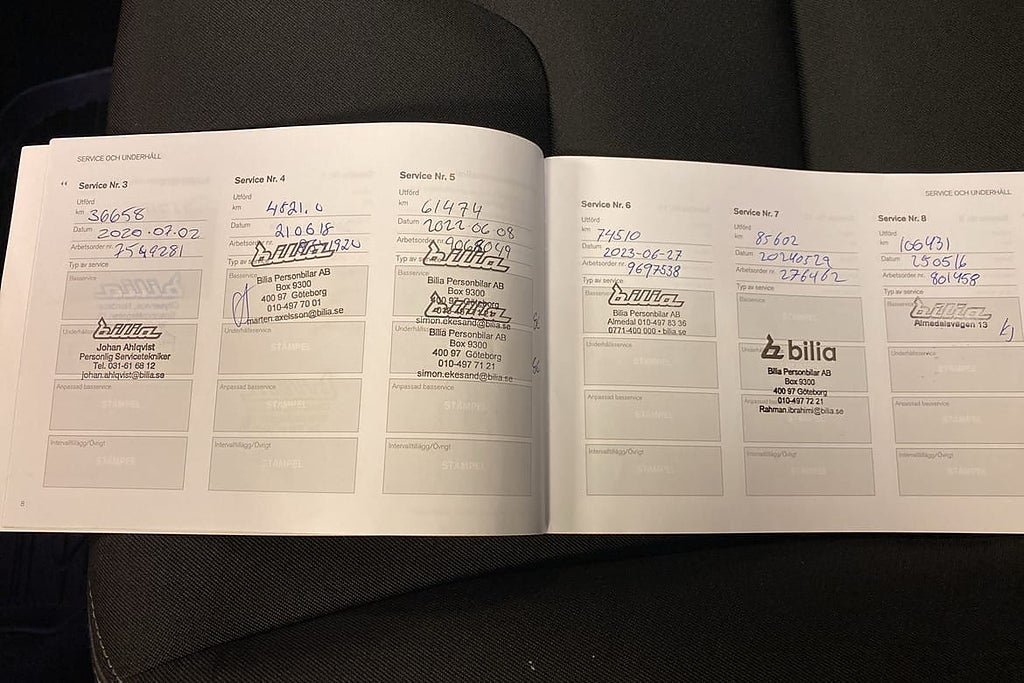 SERVICE OCH UNDERHÅLL
Service Nr. 3
Utförd
km 36658
Datum 2020-07-02
Arbetsorder nr. 7549281
Typ av service
Basservice
Underhållsservice
bilia
Johan Ahlqvist
Personlig Servicetekniker
Tel. 031-61 68 12
johan.ahlqvist@bilia.se
Anpassad basservice
Intervalltillägg/Övrigt
8
Service Nr. 4
Utförd
km
Datum 210618
Arbetsorder nr.
Typ av
Basservice
bilia
Bilia Personbilar AB
Box 9300
400 97 Göteborg
010-497 70 01
marten.axelsson@bilia.se
Underhållsservice
STÄMPEL
Anpassad basservice
STÄMPEL
Intervalltillägg/Övrigt
STÄMPEL
Service Nr. 5
Utförd
km 61474
Datum 2022-06-08
Arbetsorder nr. 9068049
bilia
Bilia Personbilar AB
Box 9300
400 97 Göteborg
bilia
simon.ekesand@bilia.se
Bilia Personbilar AB
Box 9300
400 97 Göteborg
010-497 71 21
simon.ekesand@bilia.se
Anpassad basservice
STÄMPEL
Intervalltillägg/Övrigt
STÄMPEL
SERVICE OCH UNDERHÅLL
Service Nr. 6
Utförd
km 74510
Datum 2023-06-27
Arbetsorder nr. 9697538
Typ av service
bilia
Bilia Personbilar AB
Almedal 010-497 83 36
0771-400 000 • bilia.se
Underhållsservice
STÄMPEL
Anpassad basservice
STÄMPEL
Intervalltillägg/Övrigt
STÄMPEL
Service Nr. 7
Utförd
km 85602
Datum 20240529
Arbetsorder nr. 276462
Typ av service
Basservice
bilia
Bilia Personbilar AB
Box 9300
400 97 Göteborg
010-497 72 21
Rahman.ibrahimi@bilia.se
Intervalltillägg/Övrigt
Service Nr. 8
Utförd
km 100431
Datum 250516
Arbetsorder nr. 801458
Typ av service
Basservice
bilia
Almedalsvägen 13
Underhållsservice
STÄMPEL
Anpassad basservice
STÄMPEL
Intervalltillägg/Övrigt
STÄMPEL